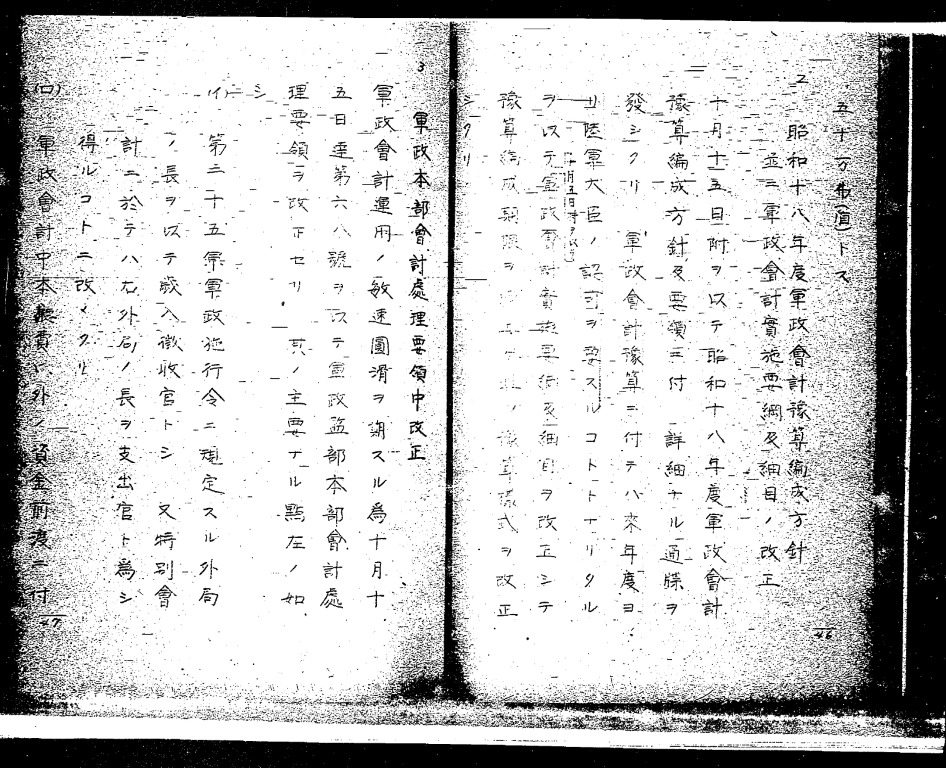 五十万弗(盾)トス
2 昭和十八年度軍政會計豫算編成方針
並ニ軍政會計實施要綱及細目ノ改正
十月十五日附ヲ以テ昭和十八年度軍政會計
豫算編成方針及要領ニ付 詳細ナル通牒ヲ
發シタリ 軍政會計豫算ニ付テハ來年度ヨ
リ陸軍大臣ノ認可ヲ要スルコトトナリタル
ヲ以テ軍政會計實施要綱及細目ヲ改正シテ
豫算編成期限ヲ ノ豫算樣式ヲ改正
シタリ
46
3 軍政本部會計處理要領中改正
軍政會計運用ノ敏速圓滑ヲ期スル爲十月十
五日達第六八號ヲ以テ軍政監部本部會計處
理要領ヲ改正セリ 其ノ主要ナル點左ノ如
シ
(イ) 第二十五軍軍政施行令ニ規定スル外局
ノ長ヲ以テ歳入徴收官トシ 又特別會
計ニ於テハ右外局ノ長ヲ支出官ト爲シ
得ルコトニ改メタリ
(ロ) 軍政會計中本 費以外ノ資金前渡ニ付
47